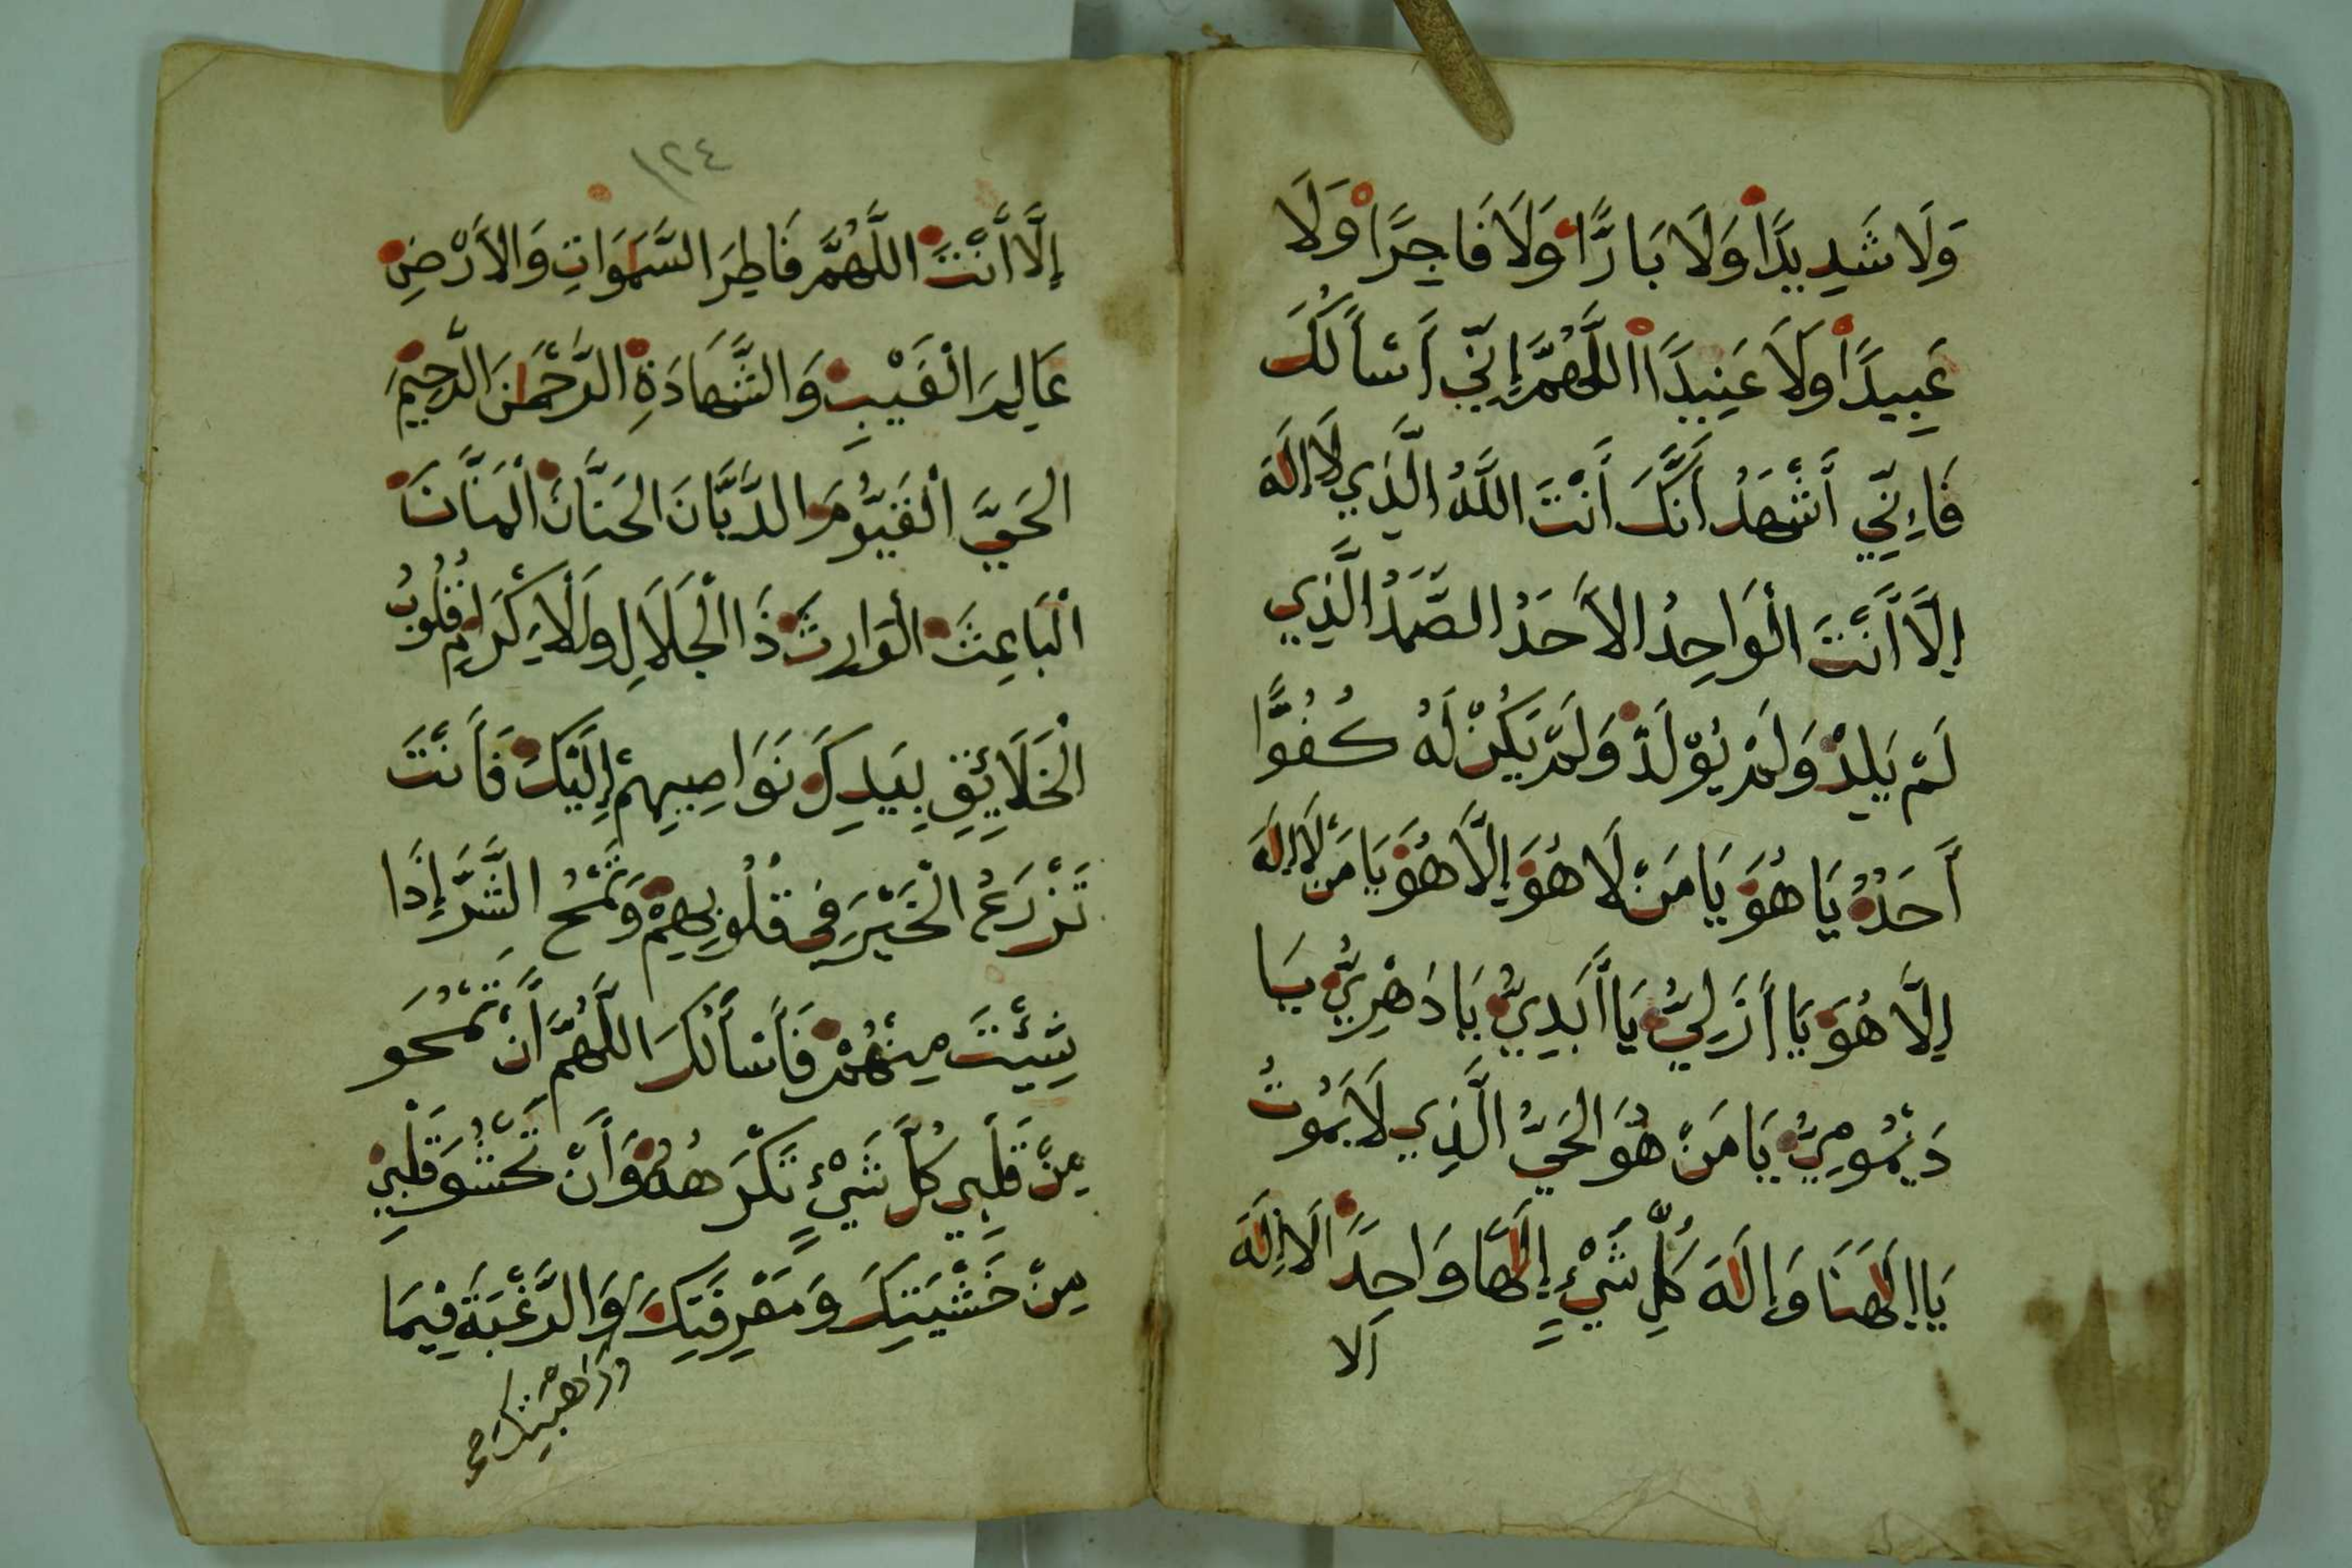 وَلَا شَدِيدًا وَلَا بَارًّا وَلَا فَاجِرًا وَلَا
عَبِيدًا وَلَا عَنِيدًا اللَّهُمَّ إِنِّي أَسْأَلُكَ
فَإِنِّي أَشْهَدُ أَنَّكَ أَنْتَ اللَّهُ الَّذِي لَا إِلَهَ
إِلَّا أَنْتَ الْوَاحِدُ الأَحَدُ الصَّمَدُ الَّذِي
لَمْ يَلِدْ وَلَمْ يُوْلَدْ وَلَمْ يَكُنْ لَهُ كُفُوًّا
أَحَدٌ يَا هُوَ يَا مَنْ لَا هُوَ إِلَّا هُوَ يَا مَنْ لَا إِلَهَ
إِلَّا هُوَ يَا أَزَلِيُّ يَا أَبَدِيُّ يَا دَهْرِيُّ يَا
دَيْمُومِيُّ يَا مَنْ هُوَ الحَيُّ الَّذِي لَا يَمُوتُ
يَا إِلَهَنَا وَإِلَهَ كُلِّ شَيْءٍ إِلَهًا وَاحِدًا لَا إِلَهَ
الا
١٢٤
إِلَّا أَنْتَ اللَّهُمَّ فَاطِرَ السَّمَوَاتِ وَالأَرْضِ
عَالِمَ الْغَيْبِ وَالشَّهَادَةِ الرَّحْمَنَ الرَّحِيمَ
الحَيَّ الْقَيُّومَ الدَّيَّانَ الحَنَّانَ الْمَنَّانَ
الْبَاعِثَ الْوَارِثَ ذَا الْجَلَالِ وَالْإِكْرَامِ قُلُوبُ
الْخَلَائِقِ بِيَدِكَ نَوَاصِيهِمْ إِلَيْكَ فَأَنْتَ
تَزْرَعُ الْخَيْرَ فِي قُلُوبِهِمْ وَتَمْحُ الشَّرَّ إِذَا
شِئْتَ مِنْهُمْ فَأَسْأَلُكَ اللَّهُمَّ أَنْ تَمْحُوَ
مِنْ قَلْبِي كُلَّ شَيْءٍ تَكْرَهُهُ وَأَنْ تَحْشُوَ قَلْبِي
مِنْ خَشْيَتِكَ وَمَعْرِفَتِكَ وَالرَّغْبَةَ فِيمَا